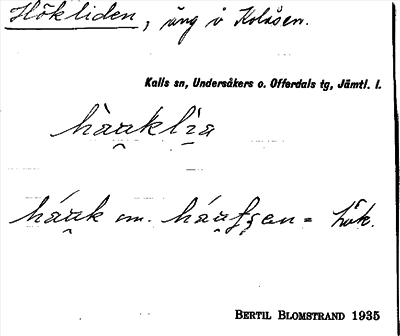 Hökliden, äng i Kolåsen.
Kalls sn, Undersåkers o. Offerdals tg, Jämtl. l.
hàu̯klìa
háu̯k om. háu̯fşen = hök.
BERTIL BLOMSTRAND 1935